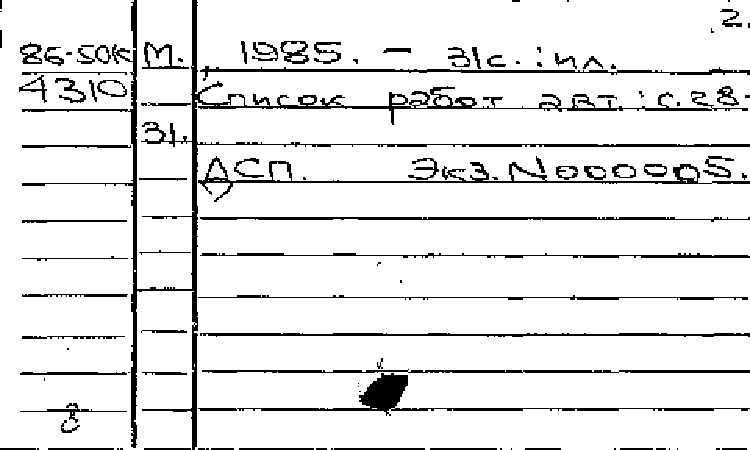 2.
86-50к М. , 1985. – 31с. : ил.
4310 Список работ авт.: с. 28-
31.
ДСП. Экз. N000005.
8